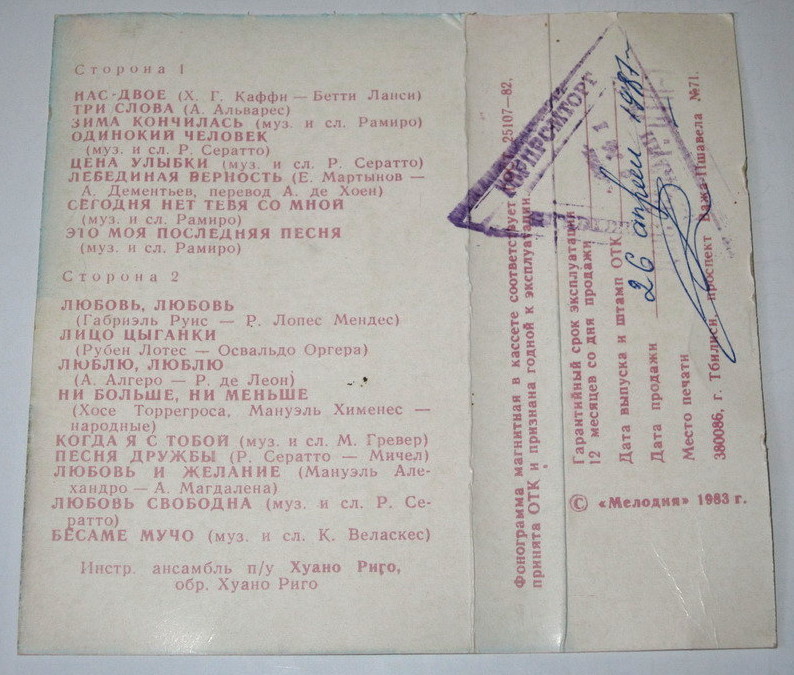 Сторона 1
НАС-ДВОЕ (Х. Г. Каффи — Бетти Ланси)
ТРИ СЛОВА (А. Альварес)
ЗИМА КОНЧИЛАСЬ (муз. и сл. Рамиро)
ОДИНОКИЙ ЧЕЛОВЕК
(муз. и сл. Р. Сератто)
ЦЕНА УЛЫБКИ (муз. и сл. Р. Сератто)
ЛЕБЕДИНАЯ ВЕРНОСТЬ (Е. Мартынов —
А. Дементьев, перевод А. де Хоен)
СЕГОДНЯ НЕТ ТЕБЯ СО МНОЙ
(муз. и сл. Рамиро)
ЭТО МОЯ ПОСЛЕДНЯЯ ПЕСНЯ
(муз. и сл. Рамиро)
Сторона 2
ЛЮБОВЬ, ЛЮБОВЬ
(Габриэль Руис — Р. Лопес Мендес)
ЛИЦО ЦЫГАНКИ
(Рубен Лотес — Освальдо Оргера)
ЛЮБЛЮ, ЛЮБЛЮ
(А. Алгеро — Р. де Леон)
НИ БОЛЬШЕ, НИ МЕНЬШЕ
(Хосе Торрегроса, Мануэль Хименес —
народные)
КОГДА Я С ТОБОЙ (муз. и сл. М. Гревер)
ПЕСНЯ ДРУЖБЫ (Р. Сератто — Мичел)
ЛЮБОВЬ И ЖЕЛАНИЕ (Мануэль Але-
хандро — А. Магдалена)
ЛЮБОВЬ СВОБОДНА (муз. и сл. Р. Се-
ратто)
БЕСАМЕ МУЧО (муз. и сл. К. Веласкес)
Инстр. ансамбль п/у Хуано Риго,
обр. Хуано Риго
Фонограмма магнитная в кассете соответствует 25107—82,
принята ОТК и признана годной к эксплуатации.
КООРПРОМТОРГ
Гарантийный срок эксплуатации
12 месяцев со дня продажи
Дата выпуска и штамп ОТК
Дата продажи 26 апреля 1987
Место печати
380086, г. Тбилиси, проспект Важа-Пшавела №71.
© «Мелодия» 1983 г.